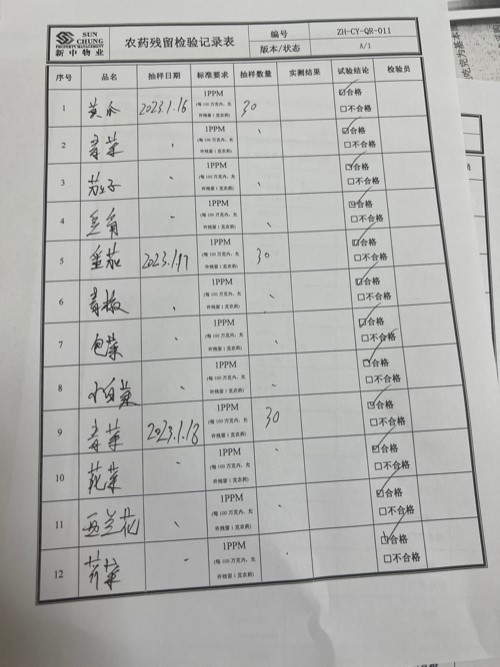 SUN CHUNG
PROPERTY MANAGEMENT
新中物业
农药残留检验记录表
编号 ZH-CY-QR-011
版本/状态 A/1
序号 品名 抽样日期 标准要求 抽样数量 实测结果 试验结论 检验员
1 黄瓜 2023.1.16 1PPM (每100万克内，允许残留1克农药) 30 ☑合格 □不合格
2 青菜 、 1PPM (每100万克内，允许残留1克农药) 、 ☑合格 □不合格
3 茄子 、 1PPM (每100万克内，允许残留1克农药) 、 ☑合格 □不合格
4 豆角 、 1PPM (每100万克内，允许残留1克农药) 、 ☑合格 □不合格
5 番茄 2023.1.17 1PPM (每100万克内，允许残留1克农药) 30 ☑合格 □不合格
6 青椒 、 1PPM (每100万克内，允许残留1克农药) 、 ☑合格 □不合格
7 包菜 、 1PPM (每100万克内，允许残留1克农药) 、 ☑合格 □不合格
8 小白菜 、 1PPM (每100万克内，允许残留1克农药) 、 ☑合格 □不合格
9 青菜 2023.1.18 1PPM (每100万克内，允许残留1克农药) 30 ☑合格 □不合格
10 花菜 、 1PPM (每100万克内，允许残留1克农药) 、 ☑合格 □不合格
11 西兰花 、 1PPM (每100万克内，允许残留1克农药) 、 ☑合格 □不合格
12 、 1PPM (每100万克内，允许残留1克农药) 、 ☑合格 □不合格